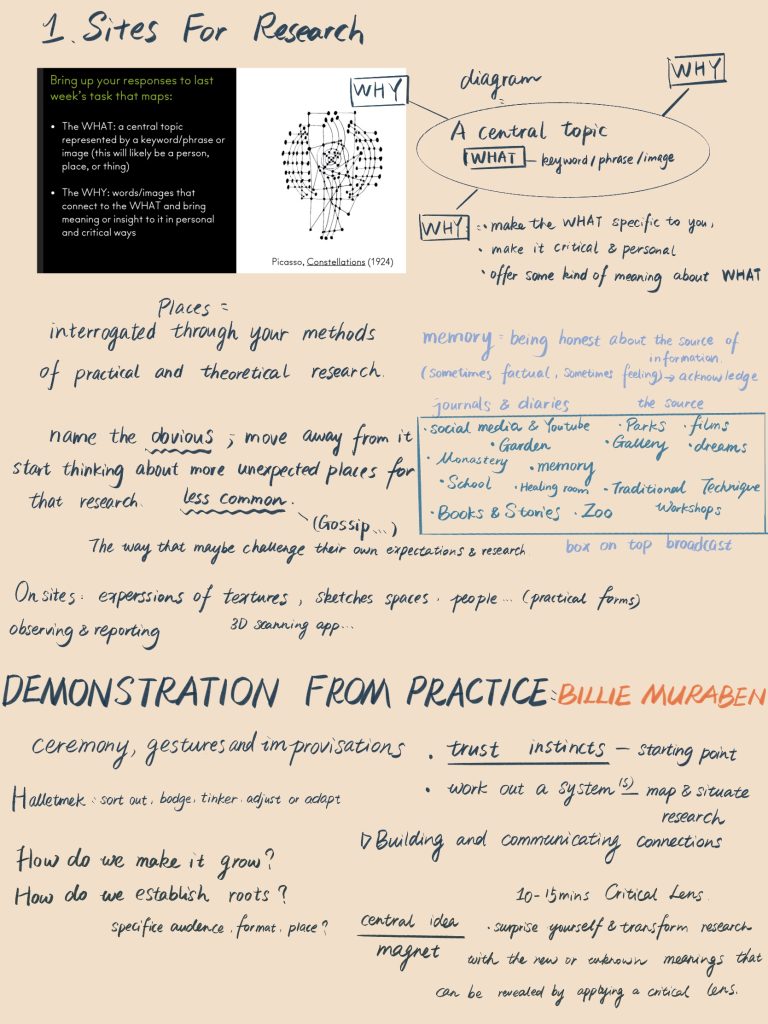 1. Sites For Research
Bring up your responses to last
week's task that maps:
• The WHAT: a central topic
represented by a keyword/phrase or
image (this will likely be a person,
place, or thing)
• The WHY: words/images that
connect to the WHAT and bring
meaning or insight to it in personal
and critical ways
Picasso, Constellations (1924)
diagram
WHY
WHY
A central topic
WHAT — keyword/phrase/image
WHY : • make the WHAT specific to you,
• make it critical & personal
• offer some kind of meaning about WHAT
Places =
interrogated through your methods
of practical and theoretical research.
memory = being honest about the source of
information.
(sometimes factual, sometimes feeling) → acknowledge
the source
journals & diaries
• social media & Youtube • Parks • films
• Garden • Gallery • dreams
• Monastery • memory
• School • Healing room • Traditional Technique
• Books & Stories • Zoo Workshops
box on top broadcast
name the obvious ; move away from it
start thinking about more unexpected places for
that research. less common.
(Gossip...)
The way that maybe challenge their own expectations & research.
On sites: experssions of textures, sketches spaces. people... (practical forms)
observing & reporting 3D scanning app...
DEMONSTRATION FROM PRACTICE: BILLIE MURABEN
ceremony, gestures and improvisations
Halletmek : sort out, bodge, tinker, adjust or adapt
How do we make it grow?
How do we establish roots?
specifice audience, format, place?
• trust instincts — starting point
• work out a system (s) — map & situate
research
▷ Building and communicating connections
10-15mins Critical Lens.
central idea
magnet
• surprise yourself & transform research
with the new or unknown meanings that
can be revealed by applying a critical lens.